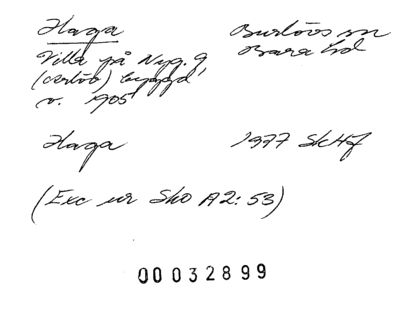 Haga Burlövs sn
Villa på Nyg. 9 Bara hd
(Arlöv) byggd
v. 1905
Haga 1977 SkHf
(Exc ur Sko A2: 53)
00032899